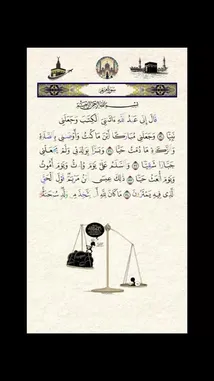 سورة مريم
بِسْمِ اللَّهِ الرَّحْمَٰنِ الرَّحِيمِ
قَالَ إِنِّي عَبْدُ اللَّهِ ءَاتَىٰنِيَ الْكِتَٰبَ وَجَعَلَنِي
نَبِيًّا وَجَعَلَنِي مُبَارَكًا أَيْنَ مَا كُنتُ وَأَوْصَٰنِي بِالصَّلَوٰةِ
وَالزَّكَوٰةِ مَا دُمْتُ حَيًّا وَبَرًّا بِوَٰلِدَتِي وَلَمْ يَجْعَلْنِي
جَبَّارًا شَقِيًّا وَالسَّلَٰمُ عَلَيَّ يَوْمَ وُلِدتُّ وَيَوْمَ أَمُوتُ
وَيَوْمَ أُبْعَثُ حَيًّا ذَٰلِكَ عِيسَى ابْنُ مَرْيَمَ قَوْلَ الْحَقِّ
الَّذِي فِيهِ يَمْتَرُونَ مَا كَانَ لِلَّهِ أَن يَتَّخِذَ مِن وَلَدٍ سُبْحَٰنَهُ